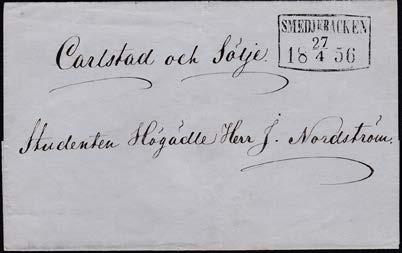 SMEDJEBACKEN
27
18 4 56
Carlstad och Sölje
Studenten Högädle Herr J. Nordström.